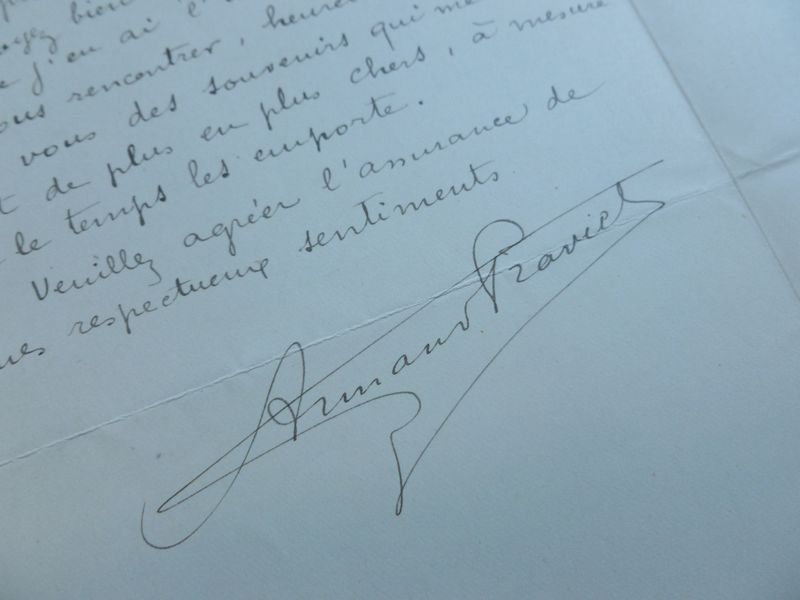 bien
j'en ai l'
rencontrer, heure
vous des souvenirs qui me
de plus en plus chers, à mesure
le temps les emporte.
Veuillez agréer l'assurance de
mes respectueux sentiments
Armand Praviel